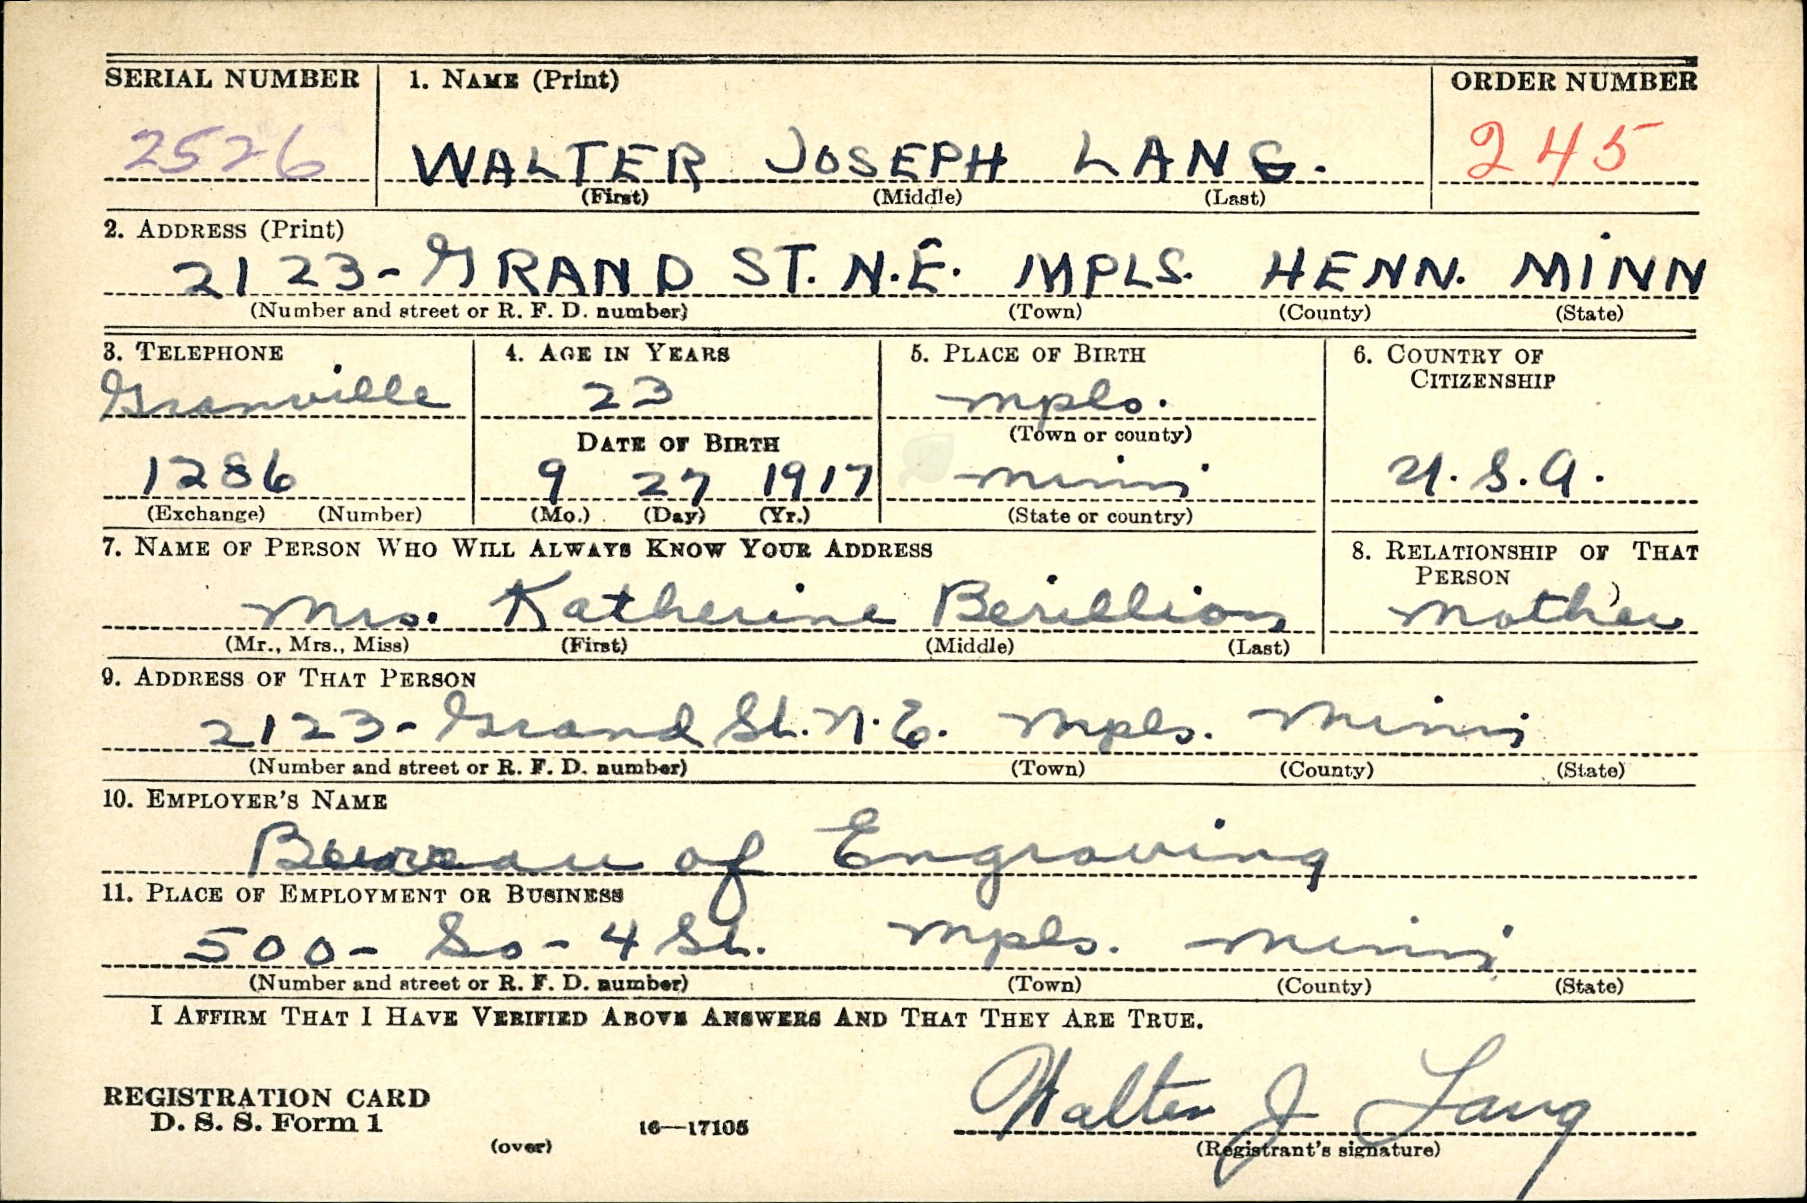 SERIAL NUMBER 1. NAME (Print) ORDER NUMBER
2526 WALTER JOSEPH LANG. 245
(First) (Middle) (Last)
2. ADDRESS (Print)
2123- GRAND ST. N.E. MPLS. HENN. MINN
(Number and street or R. F. D. number) (Town) (County) (State)
3. TELEPHONE 4. AGE IN YEARS 5. PLACE OF BIRTH 6. COUNTRY OF
CITIZENSHIP
Granville 23 Mpls.
DATE OF BIRTH (Town or county)
1286 9 27 1917 Minn U.S.A.
(Exchange) (Number) (Mo.) (Day) (Yr.) (State or country)
7. NAME OF PERSON WHO WILL ALWAYS KNOW YOUR ADDRESS 8. RELATIONSHIP OF THAT
PERSON
Mrs. Katherine Berillion Mother
(Mr., Mrs., Miss) (First) (Middle) (Last)
9. ADDRESS OF THAT PERSON
2123- Grand St. N.E. Mpls. Minn
(Number and street or R. F. D. number) (Town) (County) (State)
10. EMPLOYER'S NAME
Bureau of Engraving
11. PLACE OF EMPLOYMENT OR BUSINESS
500- So- 4 St. Mpls. Minn
(Number and street or R. F. D. number) (Town) (County) (State)
I AFFIRM THAT I HAVE VERIFIED ABOVE ANSWERS AND THAT THEY ARE TRUE.
Walter J Lang
REGISTRATION CARD
D. S. S. Form 1
(over) 16—17105 (Registrant's signature)